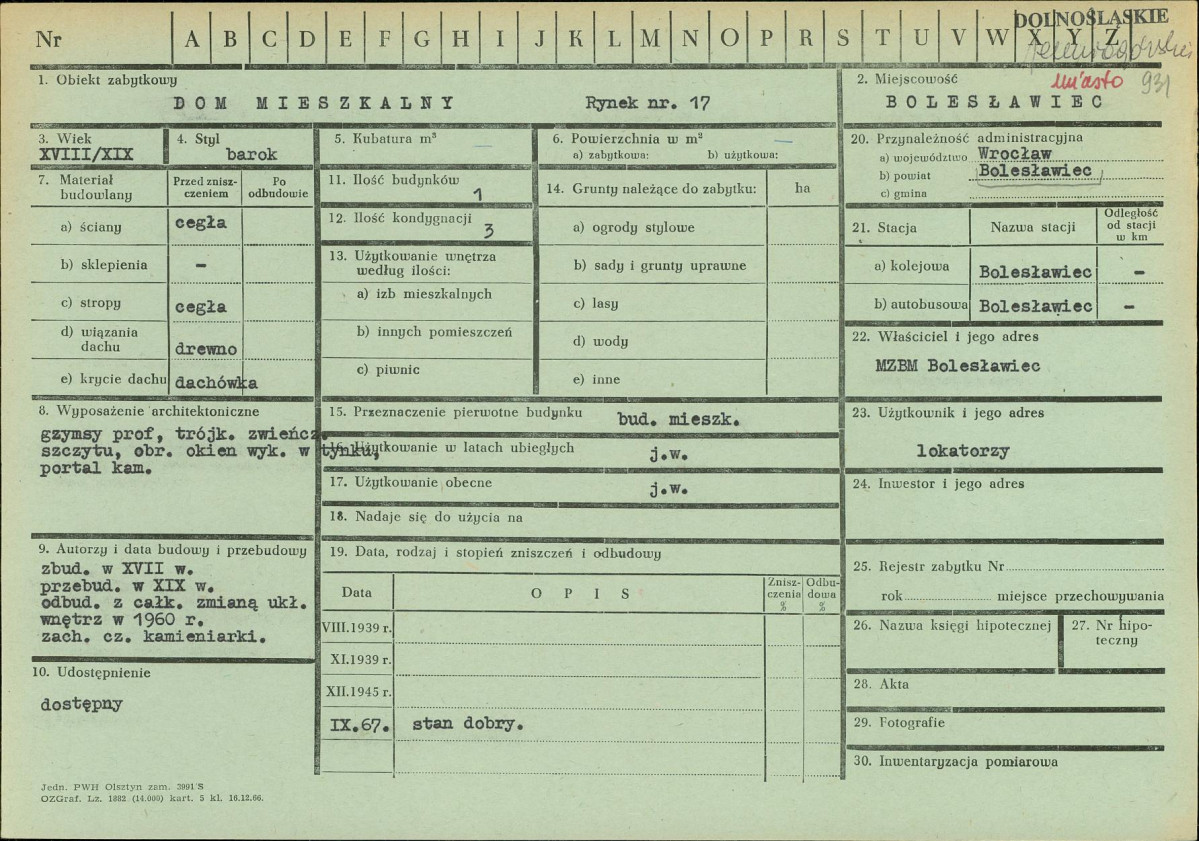 DOLNOŚLĄSKIE
Nr A B C D E F G H I J K L M N O P R S T U V W X Y Z
miasto 931
1. Obiekt zabytkowy
DOM MIESZKALNY Rynek nr. 17
2. Miejscowość
BOLESŁAWIEC
3. Wiek
XVIII/XIX
4. Styl
barok
5. Kubatura m³
—
6. Powierzchnia w m²
—
a) zabytkowa: b) użytkowa:
7. Materiał budowlany
Przed znisz-
czeniem
Po
odbudowie
a) ściany cegła
b) sklepienia –
c) stropy cegła
d) wiązania
dachu drewno
e) krycie dachu dachówka
8. Wyposażenie architektoniczne
gzymsy prof, trójk. zwieńcz.
szczytu, obr. okien wyk. w tynku,
portal kam.
9. Autorzy i data budowy i przebudowy
zbud. w XVII w.
przebud. w XIX w.
odbud. z całk. zmianą ukł.
wnętrz w 1960 r.
zach. cz. kamieniarki.
10. Udostępnienie
dostępny
11. Ilość budynków
1
12. Ilość kondygnacji
3
13. Użytkowanie wnętrza
według ilości:
a) izb mieszkalnych
b) innych pomieszczeń
c) piwnic
14. Grunty należące do zabytku: ha
a) ogrody stylowe
b) sady i grunty uprawne
c) lasy
d) wody
e) inne
15. Przeznaczenie pierwotne budynku bud. mieszk.
16. Użytkowanie w latach ubiegłych j.w.
17. Użytkowanie obecne j.w.
18. Nadaje się do użycia na
19. Data, rodzaj i stopień zniszczeń i odbudowy
Data OPIS
Znisz-
czenia
%
Odbu-
dowa
%
VIII.1939 r.
XI.1939 r.
XII.1945 r.
IX.67. stan dobry.
20. Przynależność administracyjna
a) województwo Wrocław
b) powiat Bolesławiec
c) gmina
21. Stacja Nazwa stacji
Odległość
od stacji
w km
a) kolejowa Bolesławiec –
b) autobusowa Bolesławiec –
22. Właściciel i jego adres
MZBM Bolesławiec
23. Użytkownik i jego adres
lokatorzy
24. Inwestor i jego adres
25. Rejestr zabytku Nr
rok miejsce przechowywania
26. Nazwa księgi hipotecznej
27. Nr hipo-
teczny
28. Akta
29. Fotografie
30. Inwentaryzacja pomiarowa
Jedn. PWH Olsztyn zam. 3991 S
OZGraf. Lz. 1882 (14.000) kart. 5 kl. 16.12.66.